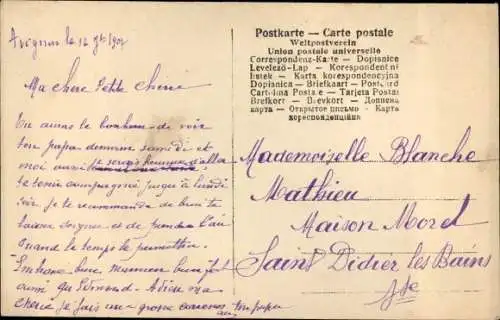 Avignon le 12 9bre 1904
Ma chère Petite Chérie
Tu auras le bonheur de voir
ton papa demain samedi et
moi aussi je serais heureuse d'aller
te tenir compagnie jusqu'à lundi
soir je te recommande de bien te
laisser soigner et de prendre l'air
Quand le temps le permettra.
Embrasse bien maman bien fort
ainsi que Fernand. Adieu ma
chérie je fais une grosse caresse au ton papa
Postkarte — Carte postale
Weltpostverein
Union postale universelle
Correspondenz-Karte — Dopisnice
Levelező-Lap — Korespondent ni
listek — Karta korespondencyjna
Dopisnica — Briefkaart — Postcard
Cartolina Postale — Tarjeta Postal
Brefkort — Brevkort — Дописна
карта — Открытое письмо — Карта
кореспонденційна
Mademoiselle Blanche
Mathieu
Maison Morel
Saint Didier les Bains